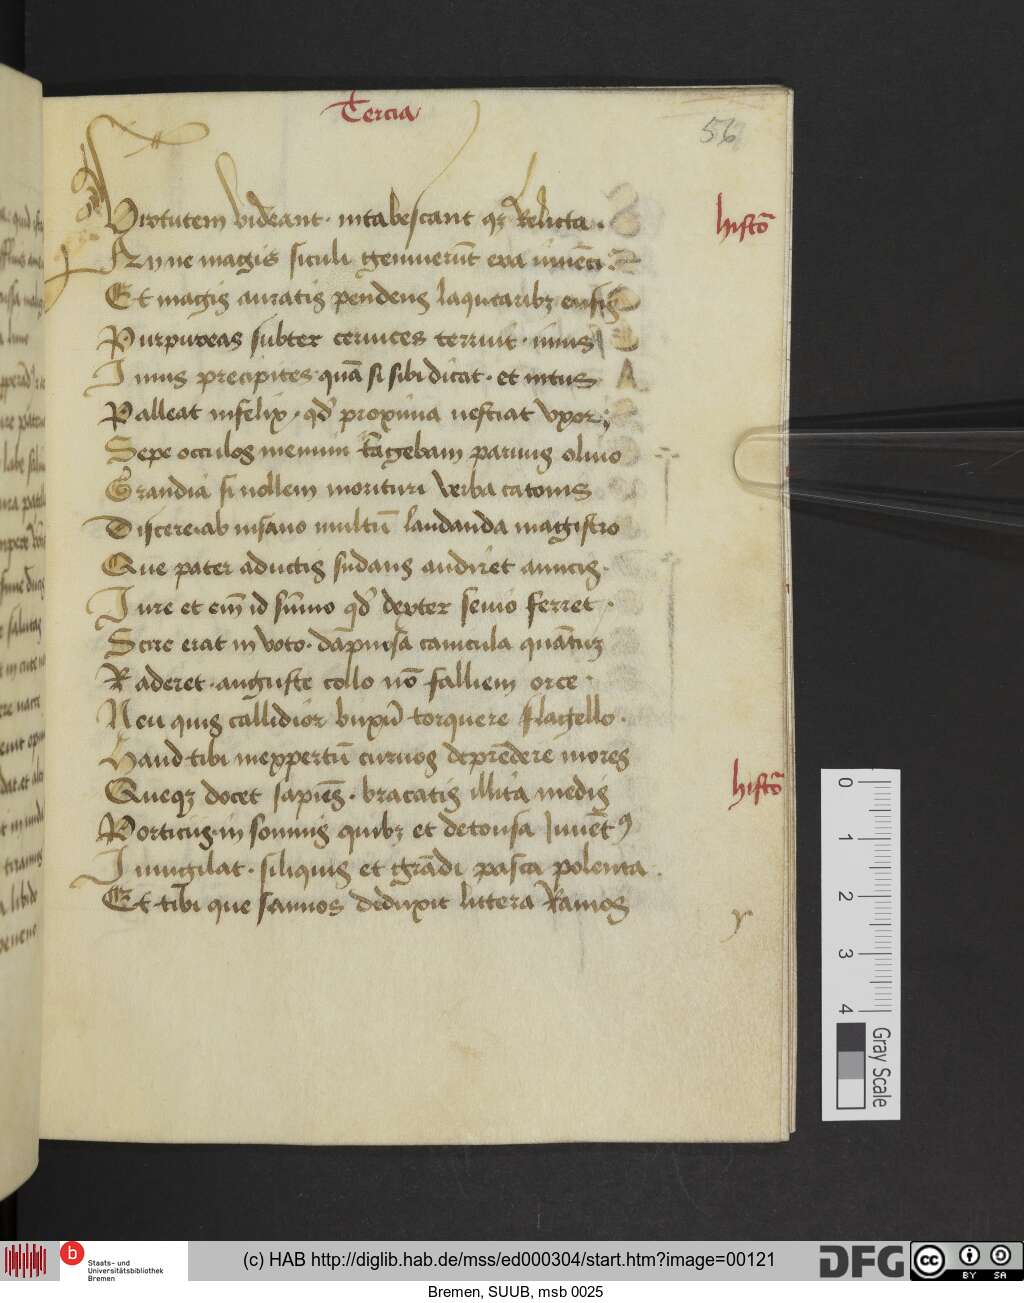 Tercia
56
Virtutem videant · intabescant qꝫ Relicta ·
histo᷄
An ne magis siculi gemuerūt era iuuēci
Et magis auratis pendens laqucaribꝫ ensis
Purpureas subter ceruices terruit · imus
Imus precipites quā si sibi dicat · et intus
Palleat infelix · qd̕ proxima nesciat vxor ;
Sepe occulos memini tāgebam paruus oliuo
Grandia si nollem morituri verba catonis
Discere ab insano multū laudanda magistro
Que pater aductis sudans audiret amicis ·
Iure et em̄ id sūmo qd̕ dexter senio ferret ·
Scire erat in voto · dāpnosa canicula quātuꝫ
Raderet · anguste collo nō falliem orce ·
Neu quis callidior buxū torquere flagello ·
Haud tibi inexpertū curuos deprēdere mores
histo᷄
Queqꝫ docet sapiēs · bracatis illita medis
Porticus in somnis quibꝫ et detonsa Iuuētꝰ
Inuigilat · siliquis et grādi pasta polenta ·
Et tibi que samios diduxit littera Ramos
y
0
1
2
3
4
Gray Scale
b
Staats- und
Universitätsbibliothek
Bremen
(c) HAB http://diglib.hab.de/mss/ed000304/start.htm?image=00121
DFG
cc
BY SA
Bremen, SUUB, msb 0025